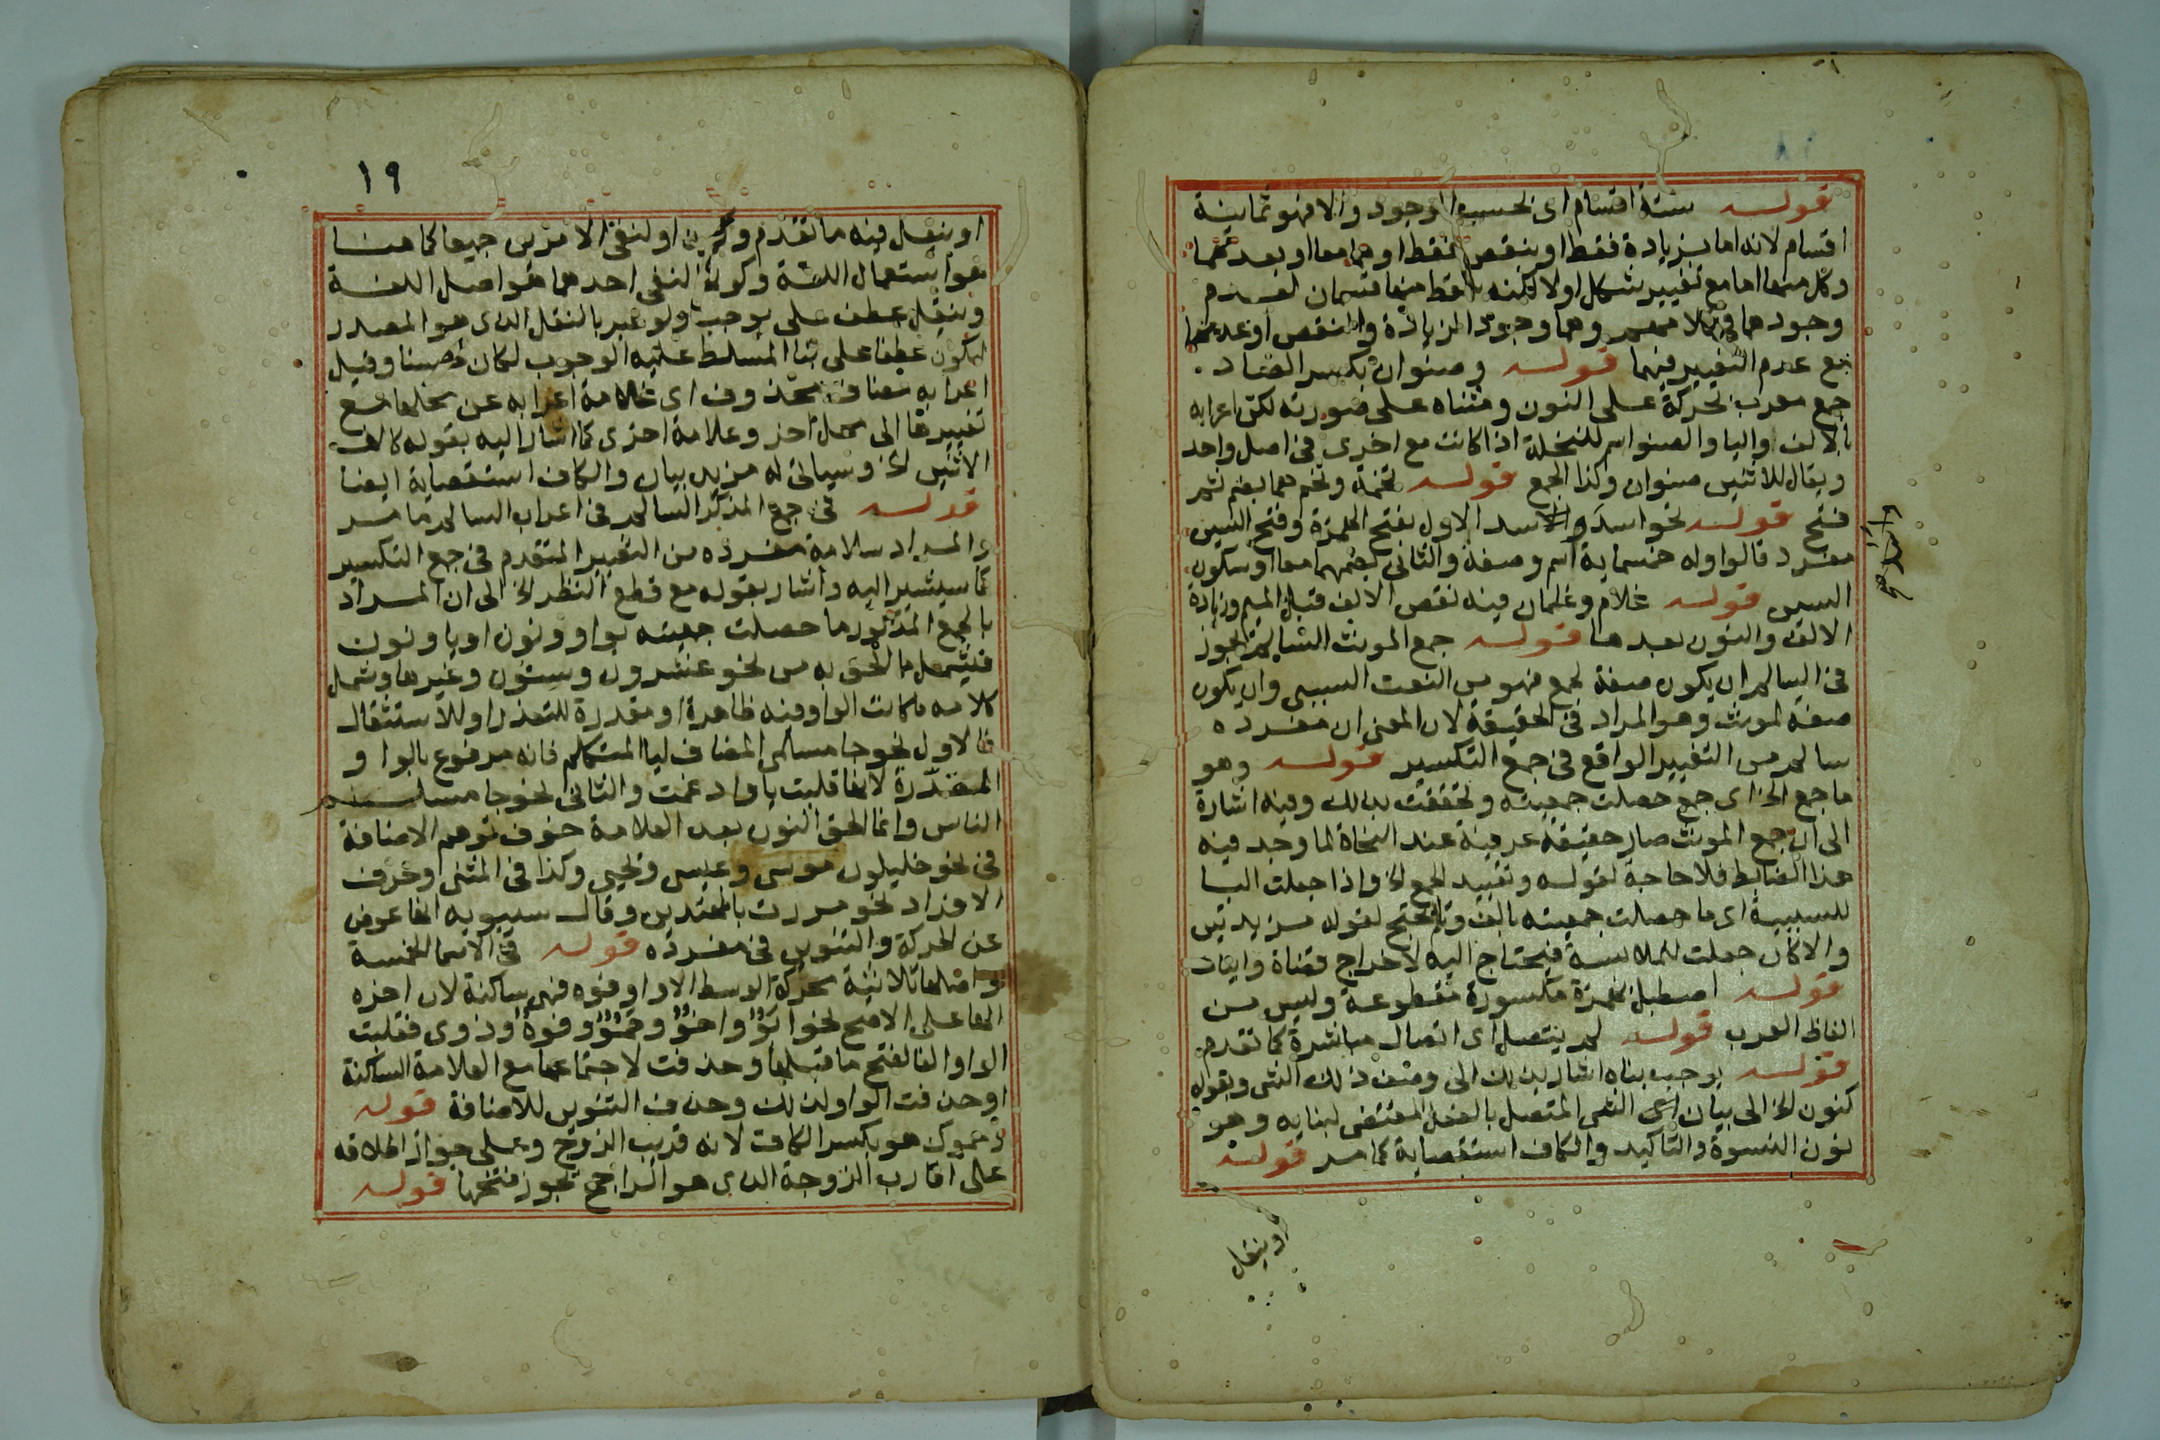 قوله ستة اقسام اى بحسب الوجود والا فهو ثمانية
اقسام لانه اما بزيادة فقط او بنقص فقط او هما معا او بعدمهما
وكل منها اما مع تغيير شكل اولا لكنه سقط منها قسمان لعدم
وجودهما فى كلامهم وهما وجود الزيادة والنقص او عدمهما
مع عدم التغيير فيهما قوله وصنوان بكسر الصاد
جمع معرب بحركة على النون ومثناه على صورته لكن اعرابه
بالالف واليا والصنو اسم للنخلة اذا كانت مع اخرى فى اصل واحد
ويقال للاثنين صنوان وكذا الجمع قوله تخمة وتخم هما بضم ثم
فتح قوله نحو اسد واسد الاول بفتح الهمزة وفتح السين
واسد صح
مفرد قالوا وله خمسماية اسم وصفة والثانى بضمهما معا او سكون
السين قوله غلام وغلمان فيه نقص الالف قبل الميم وزيادة
الالف والنون بعدها قوله جمع المونث السالم يجوز
فى السالم ان يكون صفة لجمع فهو من النعت السببى وان يكون
صفة لمونث وهو المراد فى الحقيقة لان المعنى ان مفرده
سالم من التغيير الواقع فى جمع التكسير قوله وهو
ما جمع الخ اى جمع حصلت جمعيته وتحققت بذلك وفيه اشارة
الى ان جمع المونث صار حقيقة عرفية عند النحاة لما وجد فيه
هذا الضابط فلا حاجة لقوله وتقييد الجمع الخ واذا جعلت البا
للسببية اى ما حصلت جمعيته بالف وتا لم يحتج لقوله مزيدتين
والا كان جعلت للملابسة فيحتاج اليه لاخراج قضاة وابيات
قوله اصطبل بهمزة مكسورة مقطوعة وليس من
الفاظ العرب قوله لم يتصل اى اتصال مباشرة كما تقدم
قوله يوجب بناه اشار بذلك الى وصف ذلك الشى وبقوله
كنون الخ الى بيان اسم الشى المتصل بالفعل المقتضى لبنايه وهو
نون النسوة والتاكيد والكاف استقصاية كما مر قوله
او ينقل
١٩
او ينقل فيه ما تقدم و او لنفى الامرين جميعا كما هنا
هو استعمال اللغة وكونه لنفى احدهما هو اصل اللغة
وينقل عطف على يوجب ولو عبر بالنقل الذى هو المصدر
ليكون عطفا على بنا المسلط عليه الوجوب لكان حسنا وقيل
اعرابه مضاف محذوف اى علامة اعرابه عن محلها مع
تغييرها الى محل اخر وعلامة اخرى كما اشار اليه بقوله كالف
الاثنين الخ وسياتى له مزيد بيان والكاف استقصاية ايضا
قوله فى جمع المذكر السالم فى اعراب السالم ما مر
والمراد سلامة مفرده من التغيير المتقدم فى جمع التكسير
كما سيشير اليه واشار بقوله مع قطع النظر الخ الى ان المراد
بالجمع المذكور ما حصلت جمعيته بواو ونون او يا ونون
فيشمل ما الحق به من نحو عشرون وسنون وغيرها وشمل
كلامه ما كانت الواو فيه ظاهرة او مقدرة للتعذر او للاستثقال
فالاول نحو جا مسلمى المضاف ليا المتكلم فانه مرفوع بالواو
المقدرة لانها قلبت يا وادغمت والثانى نحو جا مسلمو
الناس وانما لحق النون بعد العلامة خوف توهم الاضافة
فى نحو خليلون موسى وعيسى ويحيى وكذا فى المثنى او خوف
الافراد نحو مررت بالمهتدين وقال سيبويه انها عوض
عن الحركة والتنوين فى مفرده قوله فى الاسما الخمسة
هو اصلها ثلاثية محركة الوسط الا ذو وفوه فهى ساكنة لان اخره
الها على الاصح نحو ابَوٌ واخَوٌ وحَمَوٌ وفوهٌ وذوى فقلبت
الواو الفا لفتح ما قبلها وحذفت لاجتماعها مع العلامة الساكنة
او حذفت الواو لذلك وحذف التنوين للاضافة قوله
وحموك هو بكسر الكاف لانه قريب الزوج وعلى جواز اطلاقه
على اقارب الزوجة الذى هو الراجح يجوز فتحها قوله